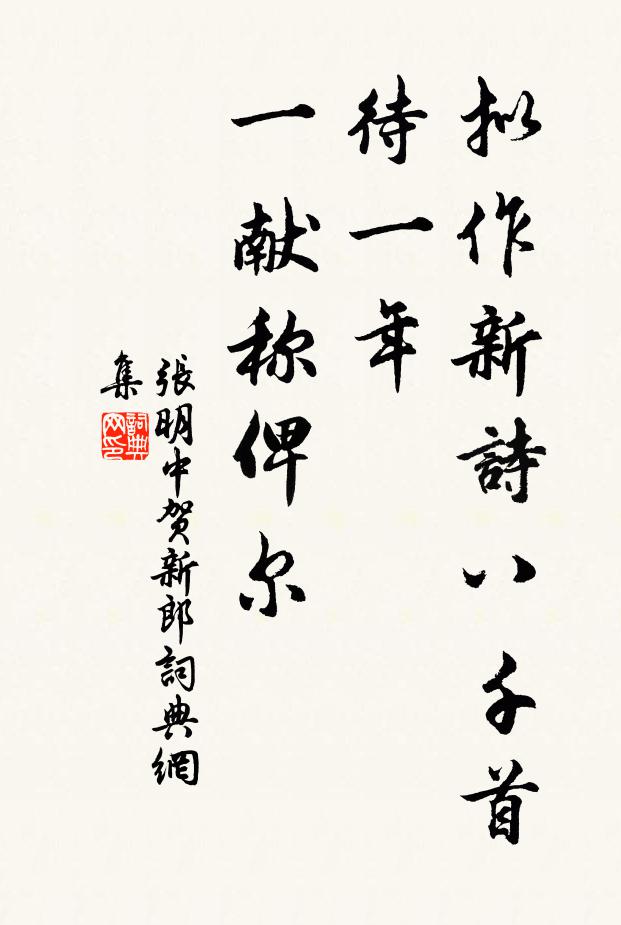 拟作新詩八千首
待一年
一献称俾尔
張明中贺新郎詞典網
集
詞典网印